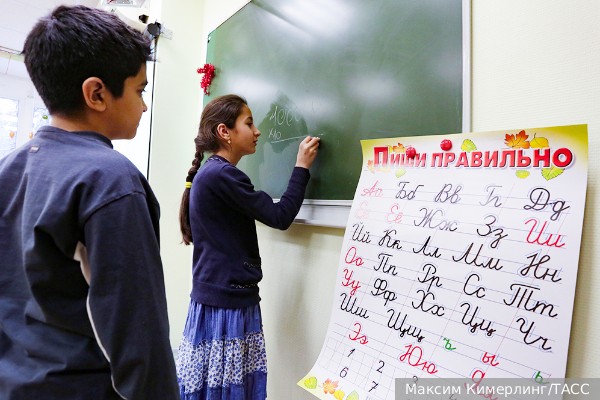 1000
10
Пиши правильно
Аа Бб Вв Гг Дд
Ее Ёё Жж Зз Ии
Йй Кк Лл Мм Нн
Оо Пп Рр Сс Тт
Уу Фф Хх Цц Чч
Шш Щщ ъ ы
Ээ Юю
1 2
6 7
Максим Кимерлинг/ТАСС